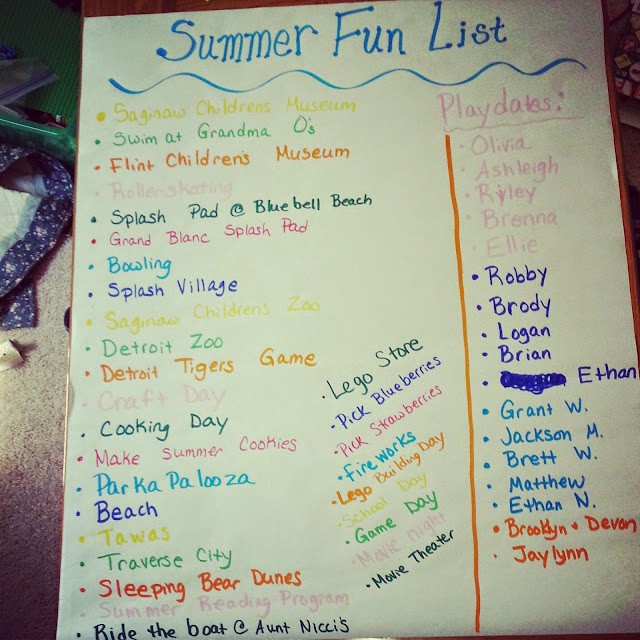 Summer Fun List
• Saginaw Childrens Museum
• Swim at Grandma O's
• Flint Children's Museum
• Rollerskating
• Splash Pad @ Bluebell Beach
• Grand Blanc Splash Pad
• Bowling
• Splash Village
• Saginaw Childrens Zoo
• Detroit Zoo
• Detroit Tigers Game
• Craft Day
• Cooking Day
• Make Summer Cookies
• Parkapalooza
• Beach
• Tawas
• Traverse City
• Sleeping Bear Dunes
• Summer Reading Program
• Ride the boat @ Aunt Nicci's
• Lego Store
• Pick Blueberries
• Pick Strawberries
• Fireworks
• Lego Building Day
• School Day
• Game Day
• Movie night
• Movie Theater
Playdates:
• Olivia
• Ashleigh
• Ryley
• Brenna
• Ellie
• Robby
• Brody
• Logan
• Brian
• Ethan
• Grant W.
• Jackson M.
• Brett W.
• Matthew
• Ethan N.
• Brooklyn + Devon
• Jaylynn